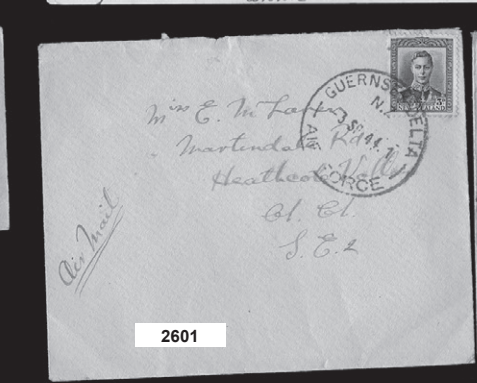 GUERNSEY DELTA
N.Z.
3 SP 44
AIR FORCE
Miss E. McLaren
Martindale Rd
Heathcote Valley
Ch. Ch.
S.E.2
Air Mail
2601